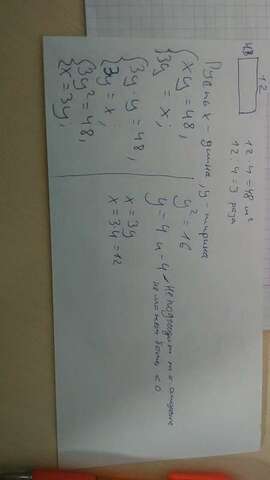 12
48
12 · 4 = 48 м²
12 : 4 = 3 раза
Пусть x - длина, y - ширина
{ xy = 48,
3y = x;
{ 3y · y = 48,
3y = x;
{ 3y² = 48,
x = 3y;
y² = 16
y = 4 и -4 - не подходит т.к.
не может быть < 0
x = 3y
x = 3·4 = 12